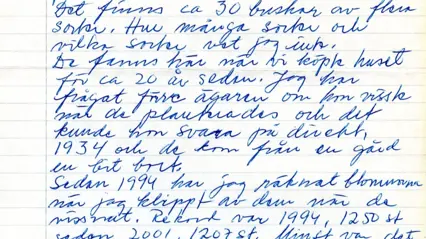 Det finns ca 30 buskar av flera
sorter. Hur många sorter och
vilka sorter vet jag inte.
De fanns här när vi köpte huset
för ca 20 år sedan. Jag har
frågat förre ägaren om hon visste
när de planterades och det
kunde hon svara på direkt,
1934 och de kom från en gård
en bit bort.
Sedan 1994 har jag räknat blommorna
när jag klippt av dem när de
vissnat. Rekord var 1994, 1250 st
sedan 2001, 1207 st. Minst var det